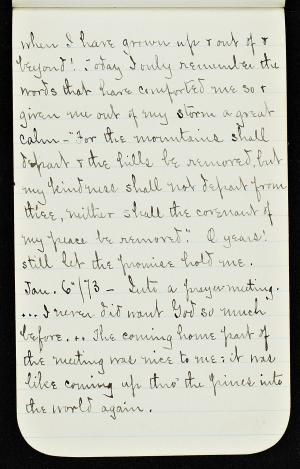 when I have grown up & out of &
beyond! Today I only remember the
words that have comforted me so &
given me out of my storm a great
calm – "For the mountains shall
depart & the hills be removed, but
my kindness shall not depart from
thee, neither shall the covenant of
my peace be removed." O years!
still let the promise hold me.
Jan. 6th/73 – Quite a prayer meeting.
... I never did want God so much
before... The coming home part of
the meeting was nice to me: it was
like coming up thro' the pines into
the world again.